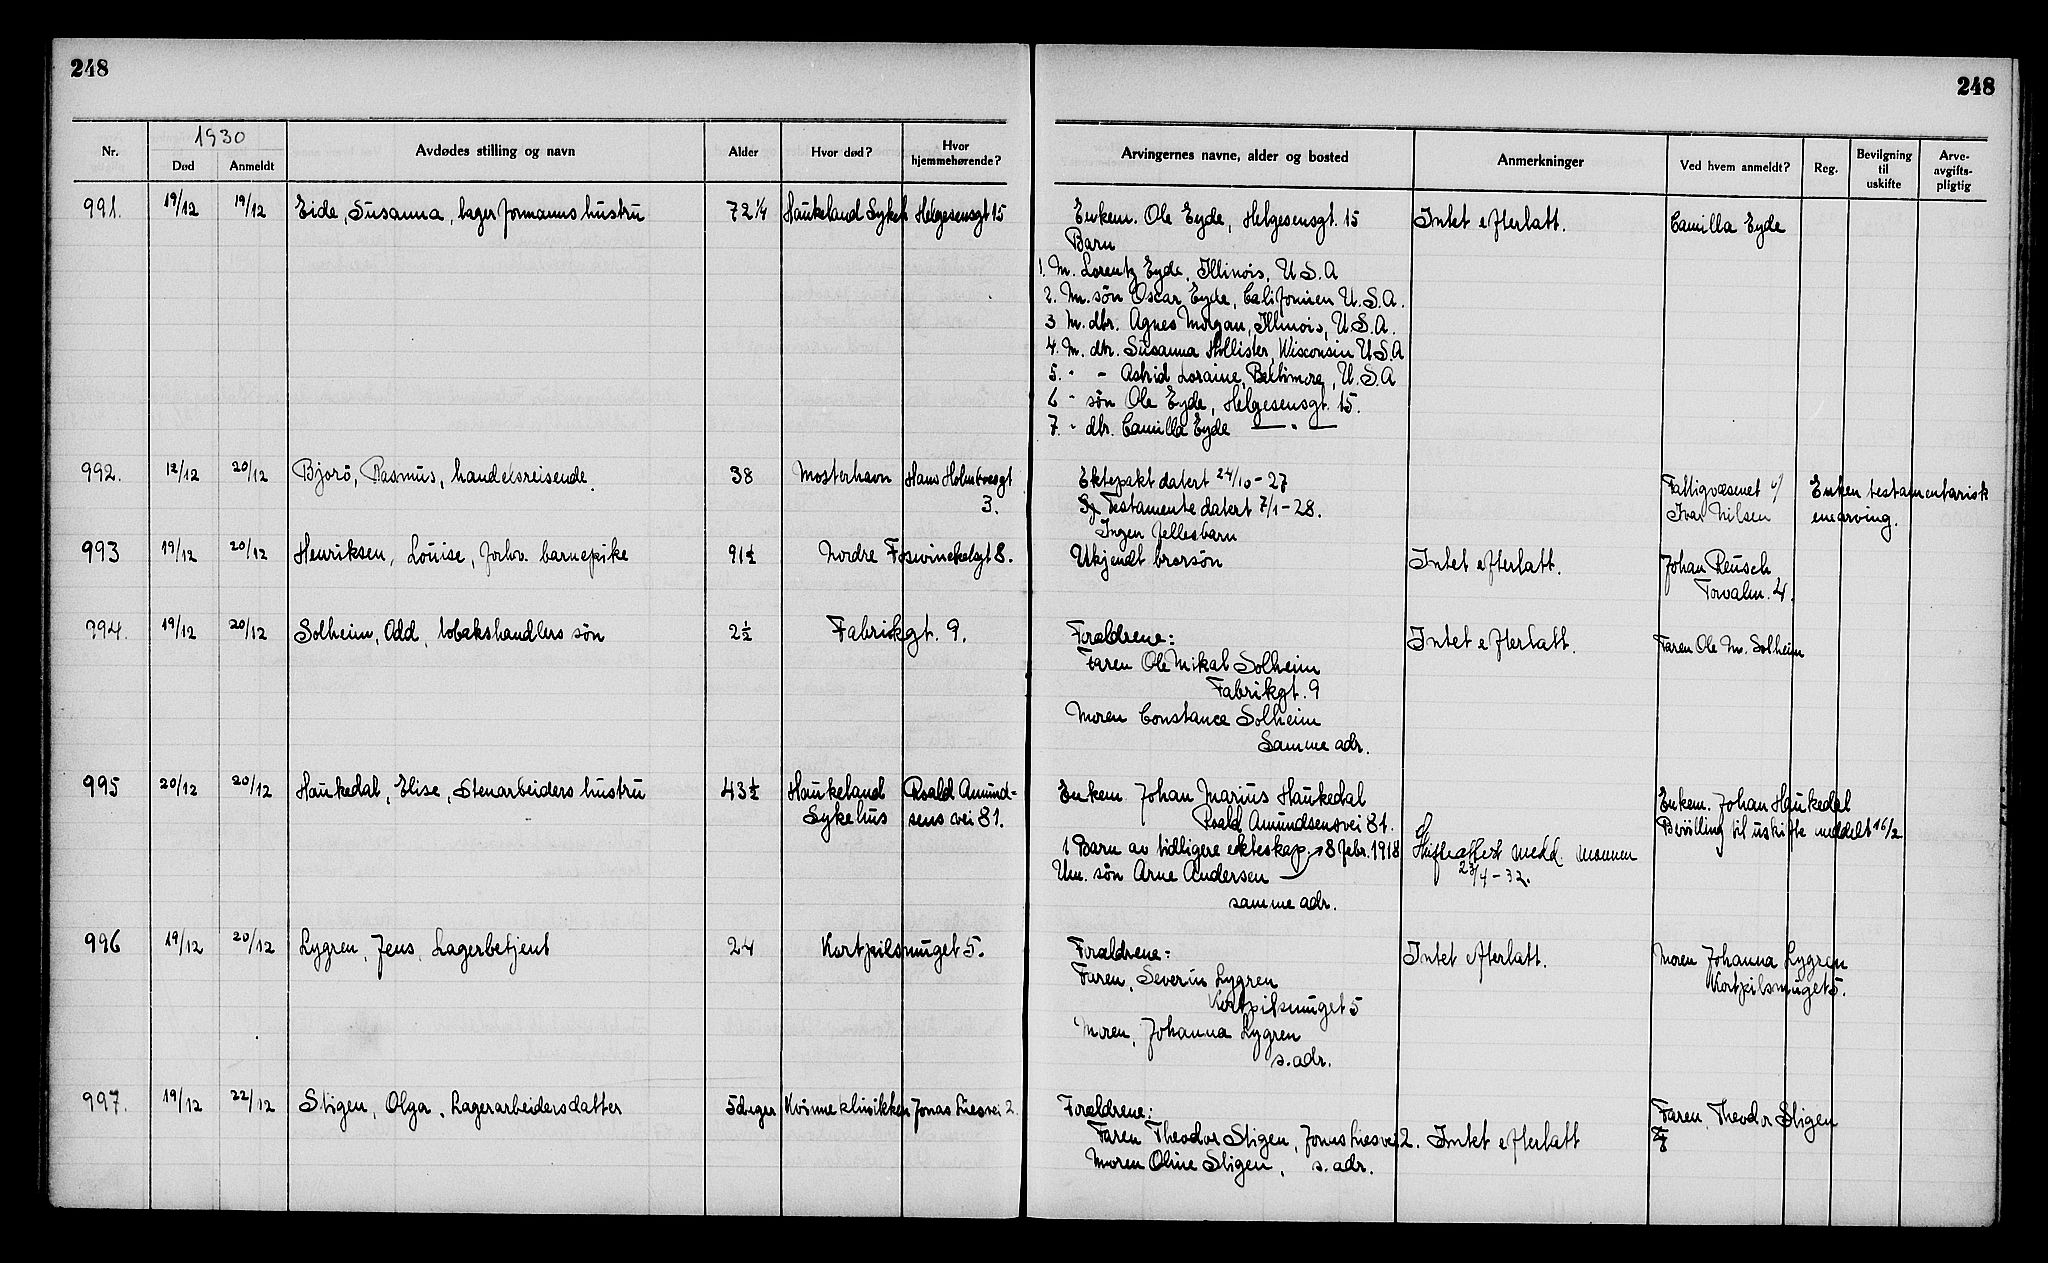 248
248
1930
Nr.
Død
Anmeldt
Avdødes stilling og navn
Alder
Hvor død?
Hvor hjemmehørende?
Arvingernes navne, alder og bosted
Anmerkninger
Ved hvem anmeldt?
Reg.
Bevilgning til uskifte
Arve-avgifts-pligtig
991. 19/12 19/12 Eide, Susanna, lagerformanns hustru 72 1/4 Haukeland Sykeh Helgesensgt 15 Enkem. Ole Eyde, Helgesensgt. 15 Intet efterlatt. Camilla Eyde
Barn
1. M. Lorentz Eyde, Illinois, U.S.A
2. M. søn Oscar Eyde, Californien U.S.A.
3 M. dtr. Agnes Morgan, Illinois, U.S.A.
4. M. dtr. Susanna Hollister, Wisconsin U.S.A
5. " - Astrid Loraine, Baltimore, U.S.A
6 " søn Ole Eyde, Helgesensgt. 15.
7. " dtr. Camilla Eyde — " —
992. 12/12 20/12 Bjorø, Rasmus, handelsreisende. 38 Mosterhavn Hans Holmboesgt Ektepakt datert 24/10-27 Fattigvæsenet v/ Enken testamentarisk
3. Testamente datert 7/1-28. Ivar Nilsen enearving.
Ingen fellesbarn
993 19/12 20/12 Henriksen, Louise, forhv. barnepike 91 1/2 Nordre Foswinckelsgt 8. Ukjendt brorsøn Intet efterlatt. Johan Reusch
Torvalm. 4.
994. 19/12 20/12 Solheim, Odd, tobakshandlers søn 2 1/2 Fabrikgt. 9. Foraldrene: Intet efterlatt. Faren Ole M. Solheim
Faren Ole Mikal Solheim
Fabrikgt. 9
Moren Constance Solheim
Samme adr.
995 20/12 20/12 Haukedal, Elise, Stenarbeiders hustru 43 1/2 Haukeland Roald Amund- Enkem. Johan Marius Haukedal Enkem. Johan Haukedal
Sykehus sens vei 81. Roald Amundsensvei 81. Bevilling til uskifte meddelt 16/2
1 Barn av tidligere ekteskap. 8 febr. 1918 Skifteattest medd. mannen
Um. søn Arne Andersen 23/4-32.
samme adr.
996 19/12 20/12 Lygren, Jens, Lagerbetjent 24 Kortpilsmuget 5. Foraldrene: Intet efterlatt. Moren Johanna Lygren
Faren, Severin Lygren Kortpilsmuget 5.
Kortpilsmuget 5
Moren, Johanna Lygren
s. adr.
997. 19/12 22/12 Stigen, Olga, Lagerarbeidersdatter 5 dager Kvinneklinikken Jonas Liesvei 2. Foraldrene: Faren, Theodor Stigen
Faren Theodor Stigen, Jonas Liesvei 2. Intet efterlatt
Moren Oline Stigen, s. adr.